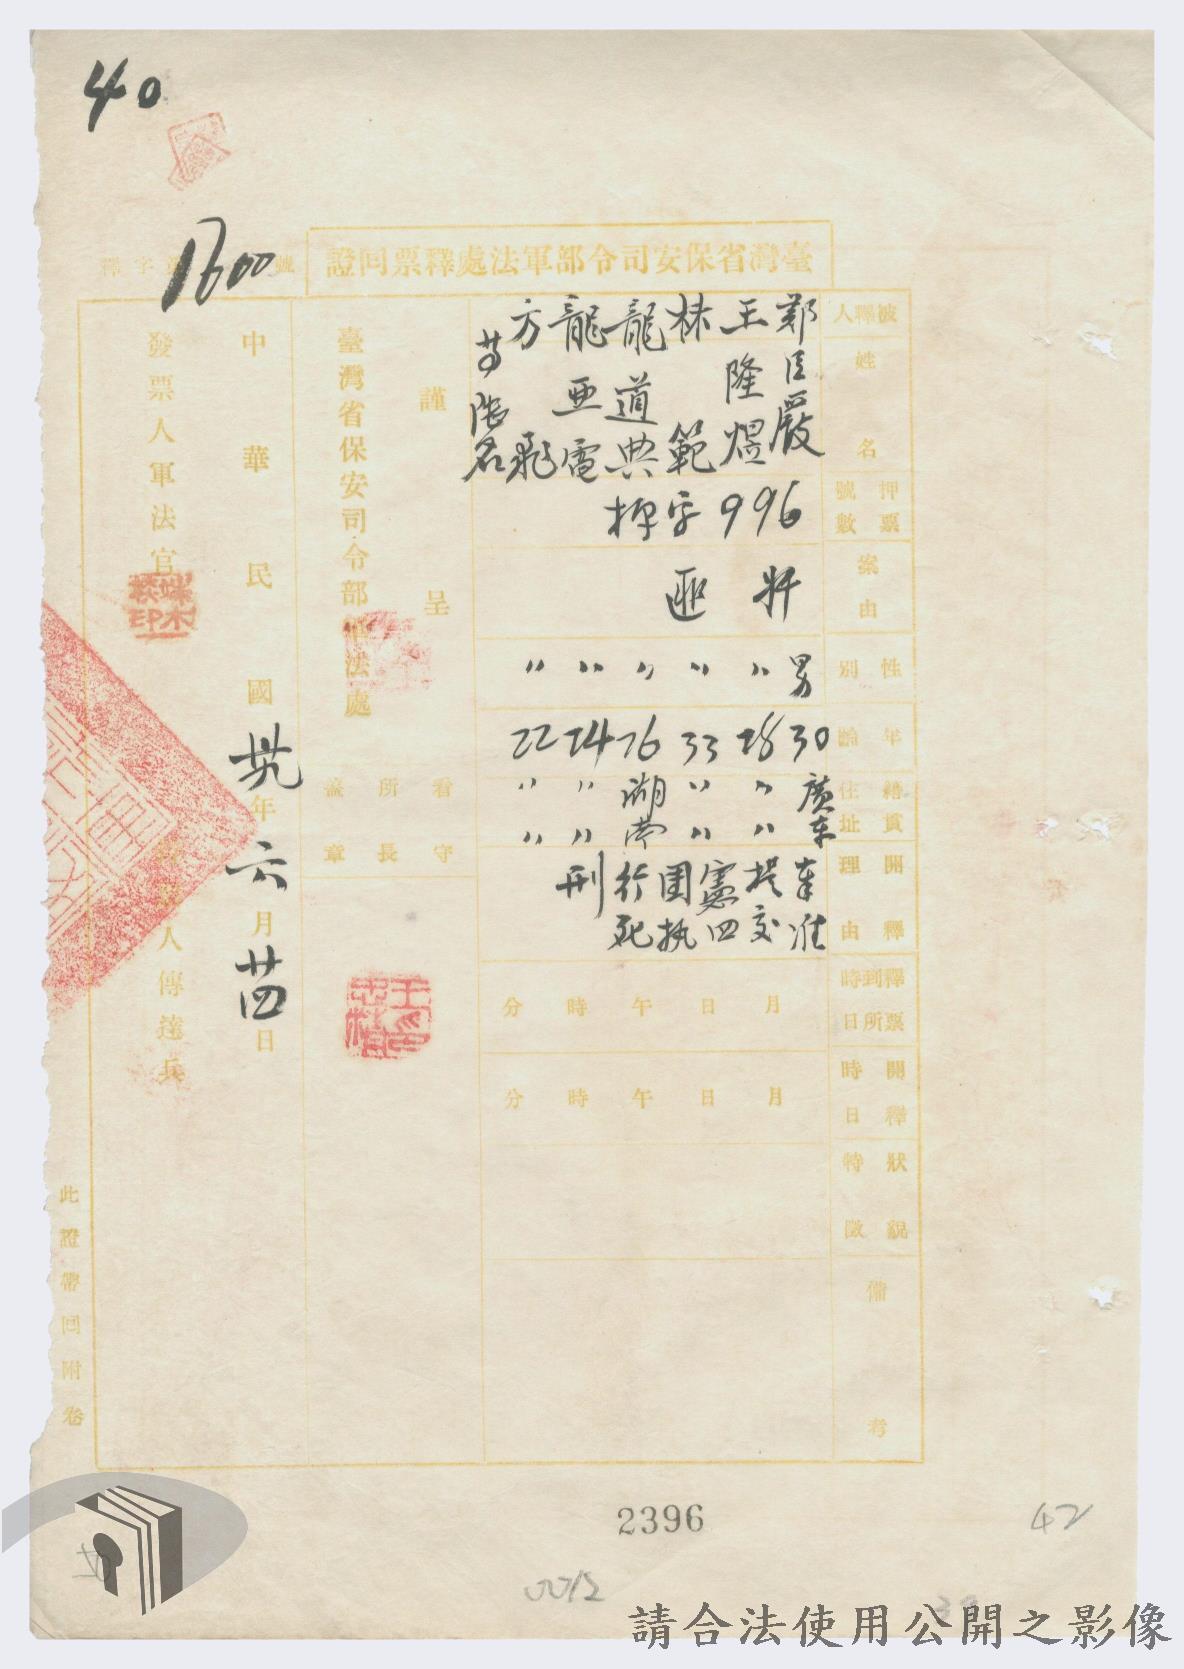 40
1600
臺灣省保安司令部軍法處釋票回證
釋字第 號
被釋人
姓名
鄭臣嚴
王隆煜
林範
龍道典
龍亞電
方飛
等陸名
押票號數
996
字
案由
奸匪
性別
男 〃 〃 〃 〃 〃
年齡
30 28 33 26 24 22
籍貫住址
廣東 〃 〃 湖南 〃 〃
開釋理由
奉准
提交
憲四
團執
行死
刑
釋票到所時日
月 日 午 時 分
開釋時日
月 日 午 時 分
狀貌特徵
備考
謹呈
臺灣省保安司令部軍法處
看守所長蓋章
中華民國卅九年六月廿四日
發票人軍法官
人傳達兵
此證帶回附卷
2396
42
0012
請合法使用公開之影像